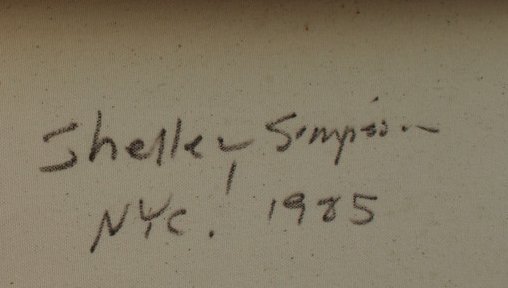 Shelley Simpson
NYC. 1985